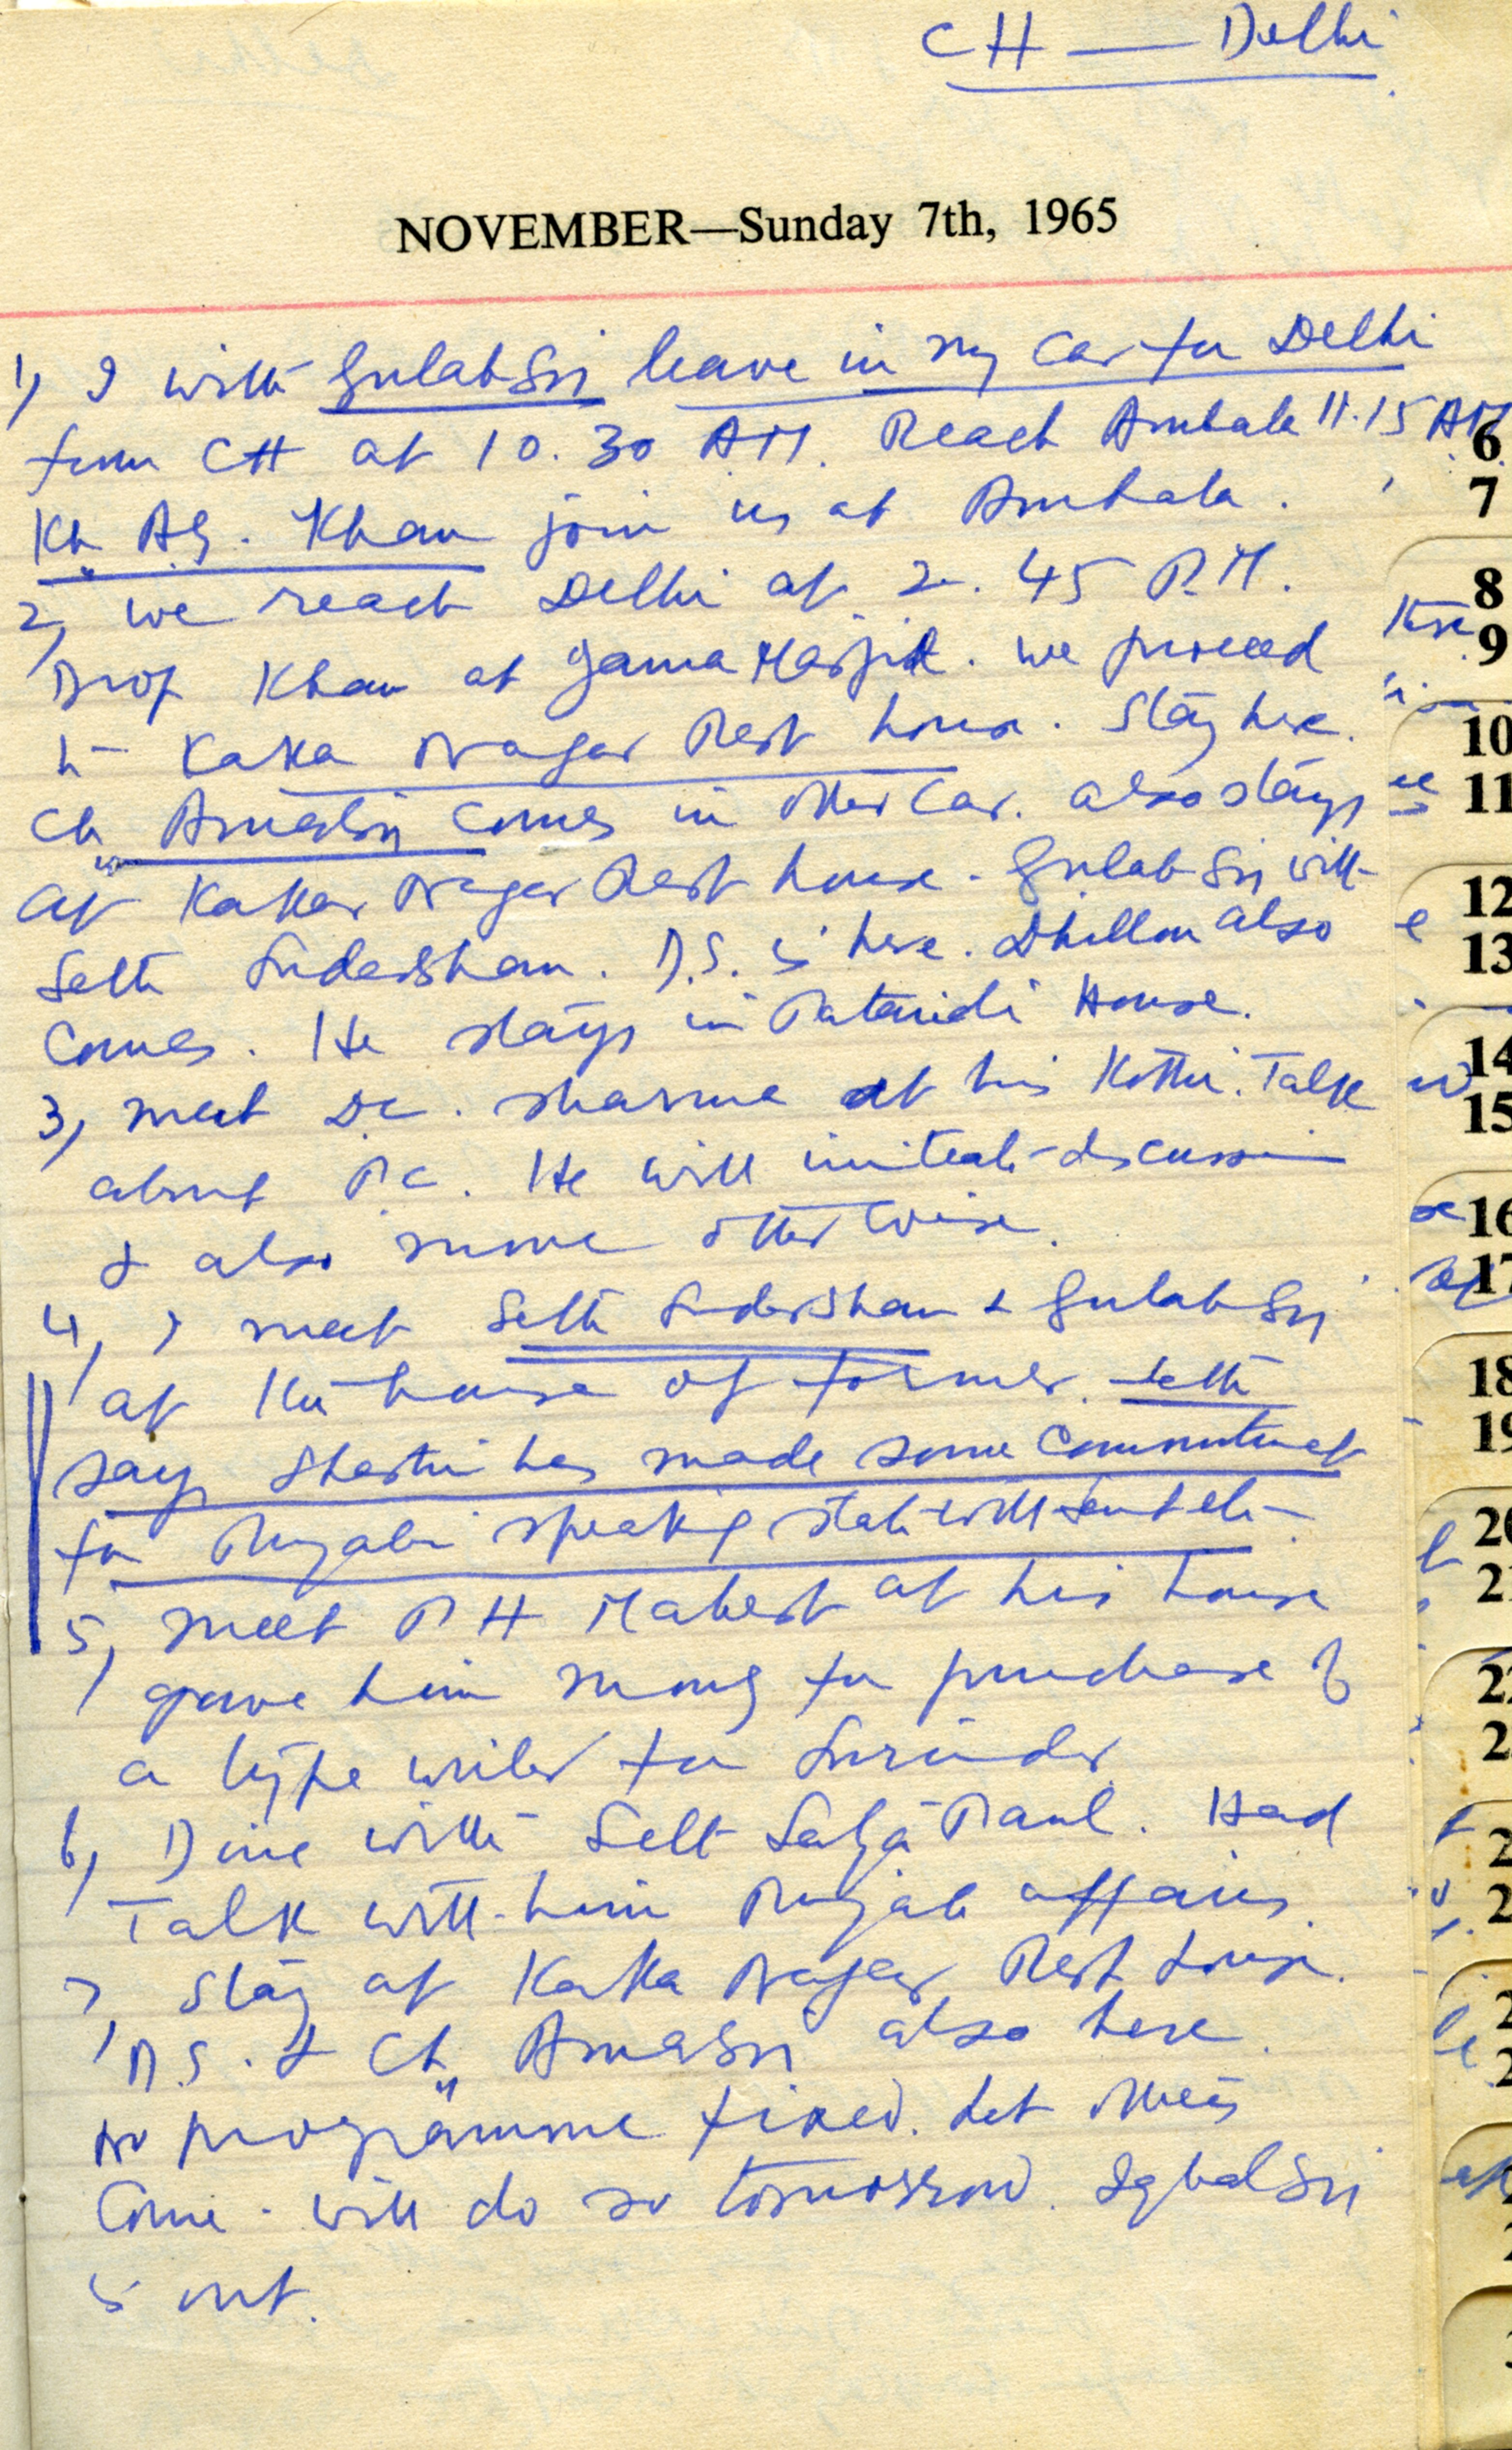 CH — Delhi
NOVEMBER—Sunday 7th, 1965
1, I with Gulab Sri leave in my Car for Delhi
from CH at 10.30 AM. Reach Ambala 11.15 AM
Kh AG. Khan join us at Ambala.
2, we reach Delhi at 2.45 P.M.
Drop Khan at Jama Masjid. We proceed
to Kaka Nagar Rest house. Stay here.
Ch Amar Sri comes in other Car. also stays
at Kaka Nagar Rest house. Gulab Sri with
Seth Sudershan. D.S. is here. Dhillon also
Comes. He stays in Pataudi House.
3, meet D.C. Sharma at his Kothi. Talk
about P.C. He will initiate discussion
& also move otherwise.
4, I meet Seth Sudershan & Gulab Sri
at the house of former. Seth
says Shastri has made some Commitment
for Punjabi speaking state with Sant etc.
5, meet PH at his house
gave him money for purchase of
a type writer for Surinder
6, Dine with Seth Satya Paul. Had
Talk with him Punjab affairs.
7, Stay at Kaka Nagar Rest house.
D.S. & Ch Amar Sri also here.
No programme fixed. Let others
Come. will do so tomorrow. Iqbal Sri
is out.
6
7
8
9
10
11
12
13
14
15
16
17
18
19